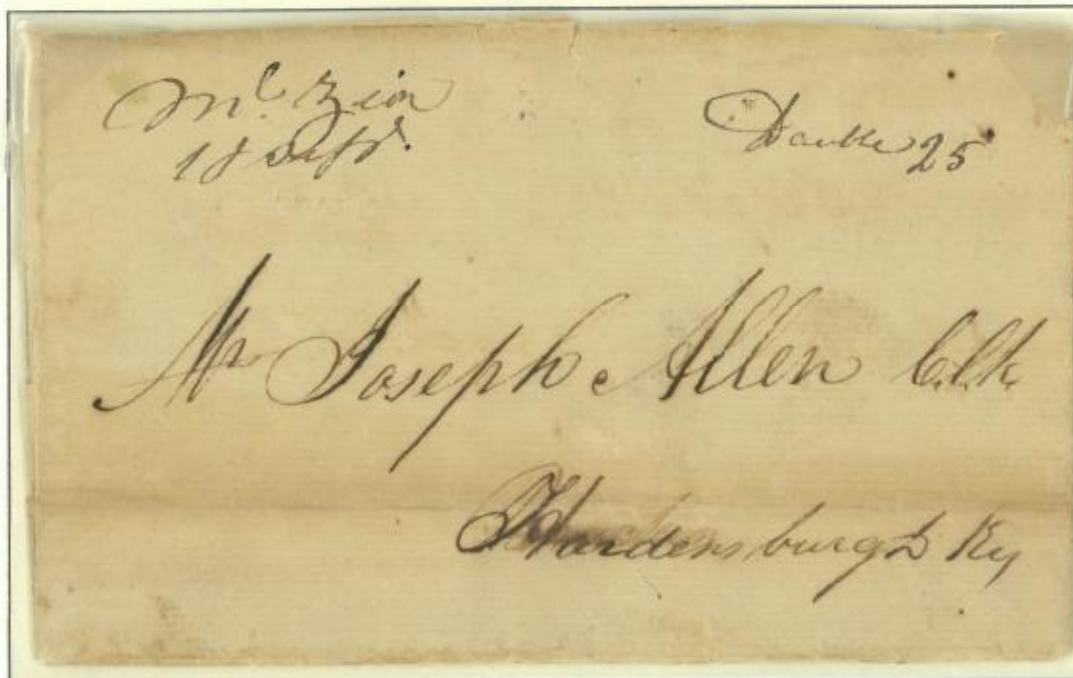 Mt. Zion
18 Sept.
Double 25
Mr Joseph Allen Clk.
Hardensburgh Ky